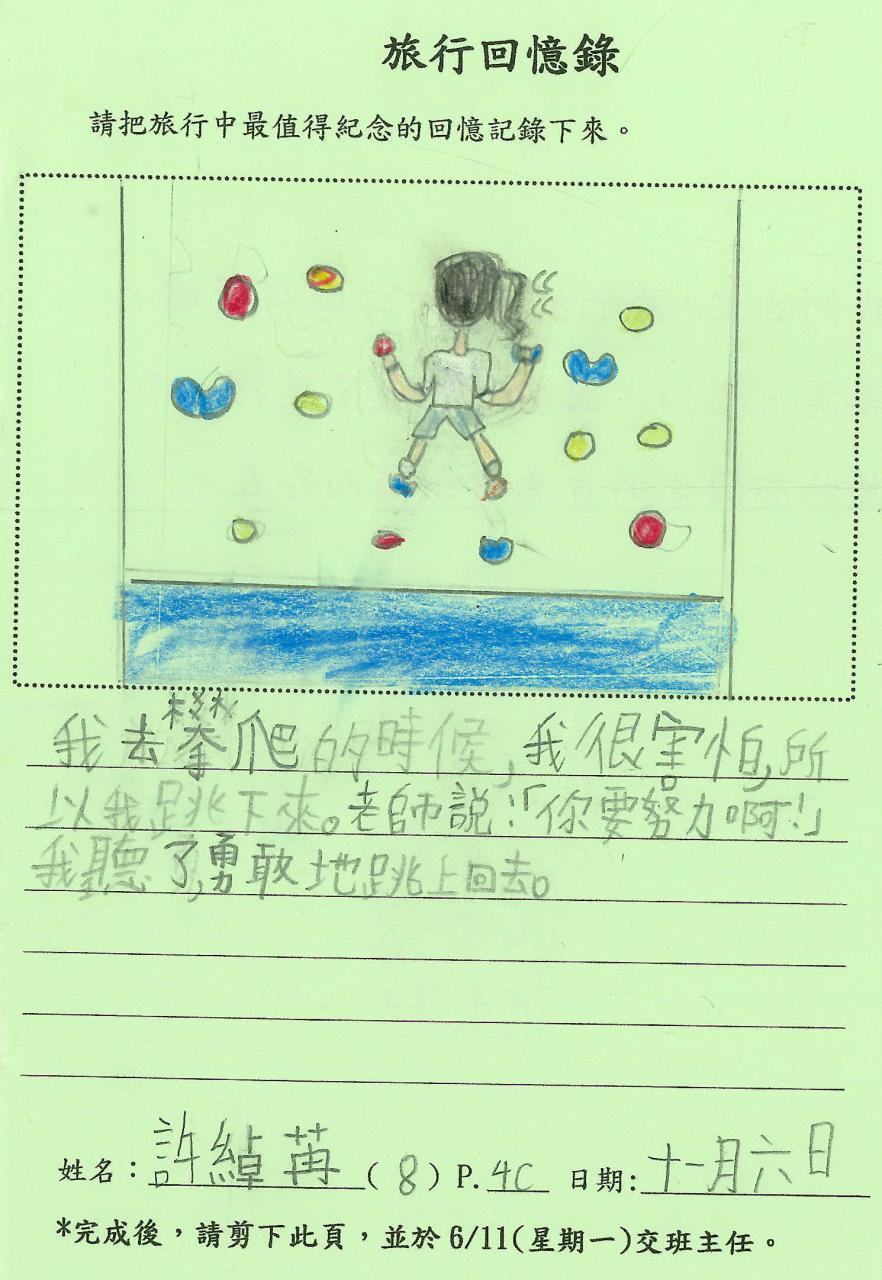 旅行回憶錄
請把旅行中最值得紀念的回憶記錄下來。
我去攀爬的時候,我很害怕,所
以我跳下來。老師説:「你要努力啊!」
我聽了,勇敢地跳上回去。
姓名:許綽苒(8) P.4C 日期:十一月六日
*完成後,請剪下此頁,並於6/11(星期一)交班主任。